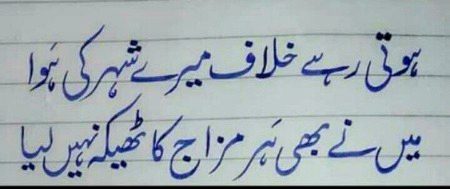 ہوتی رہے خلاف میرے شہر کی ہَوا
میں نے بھی ہَر مزاج کا ٹھیکہ نہیں لیا